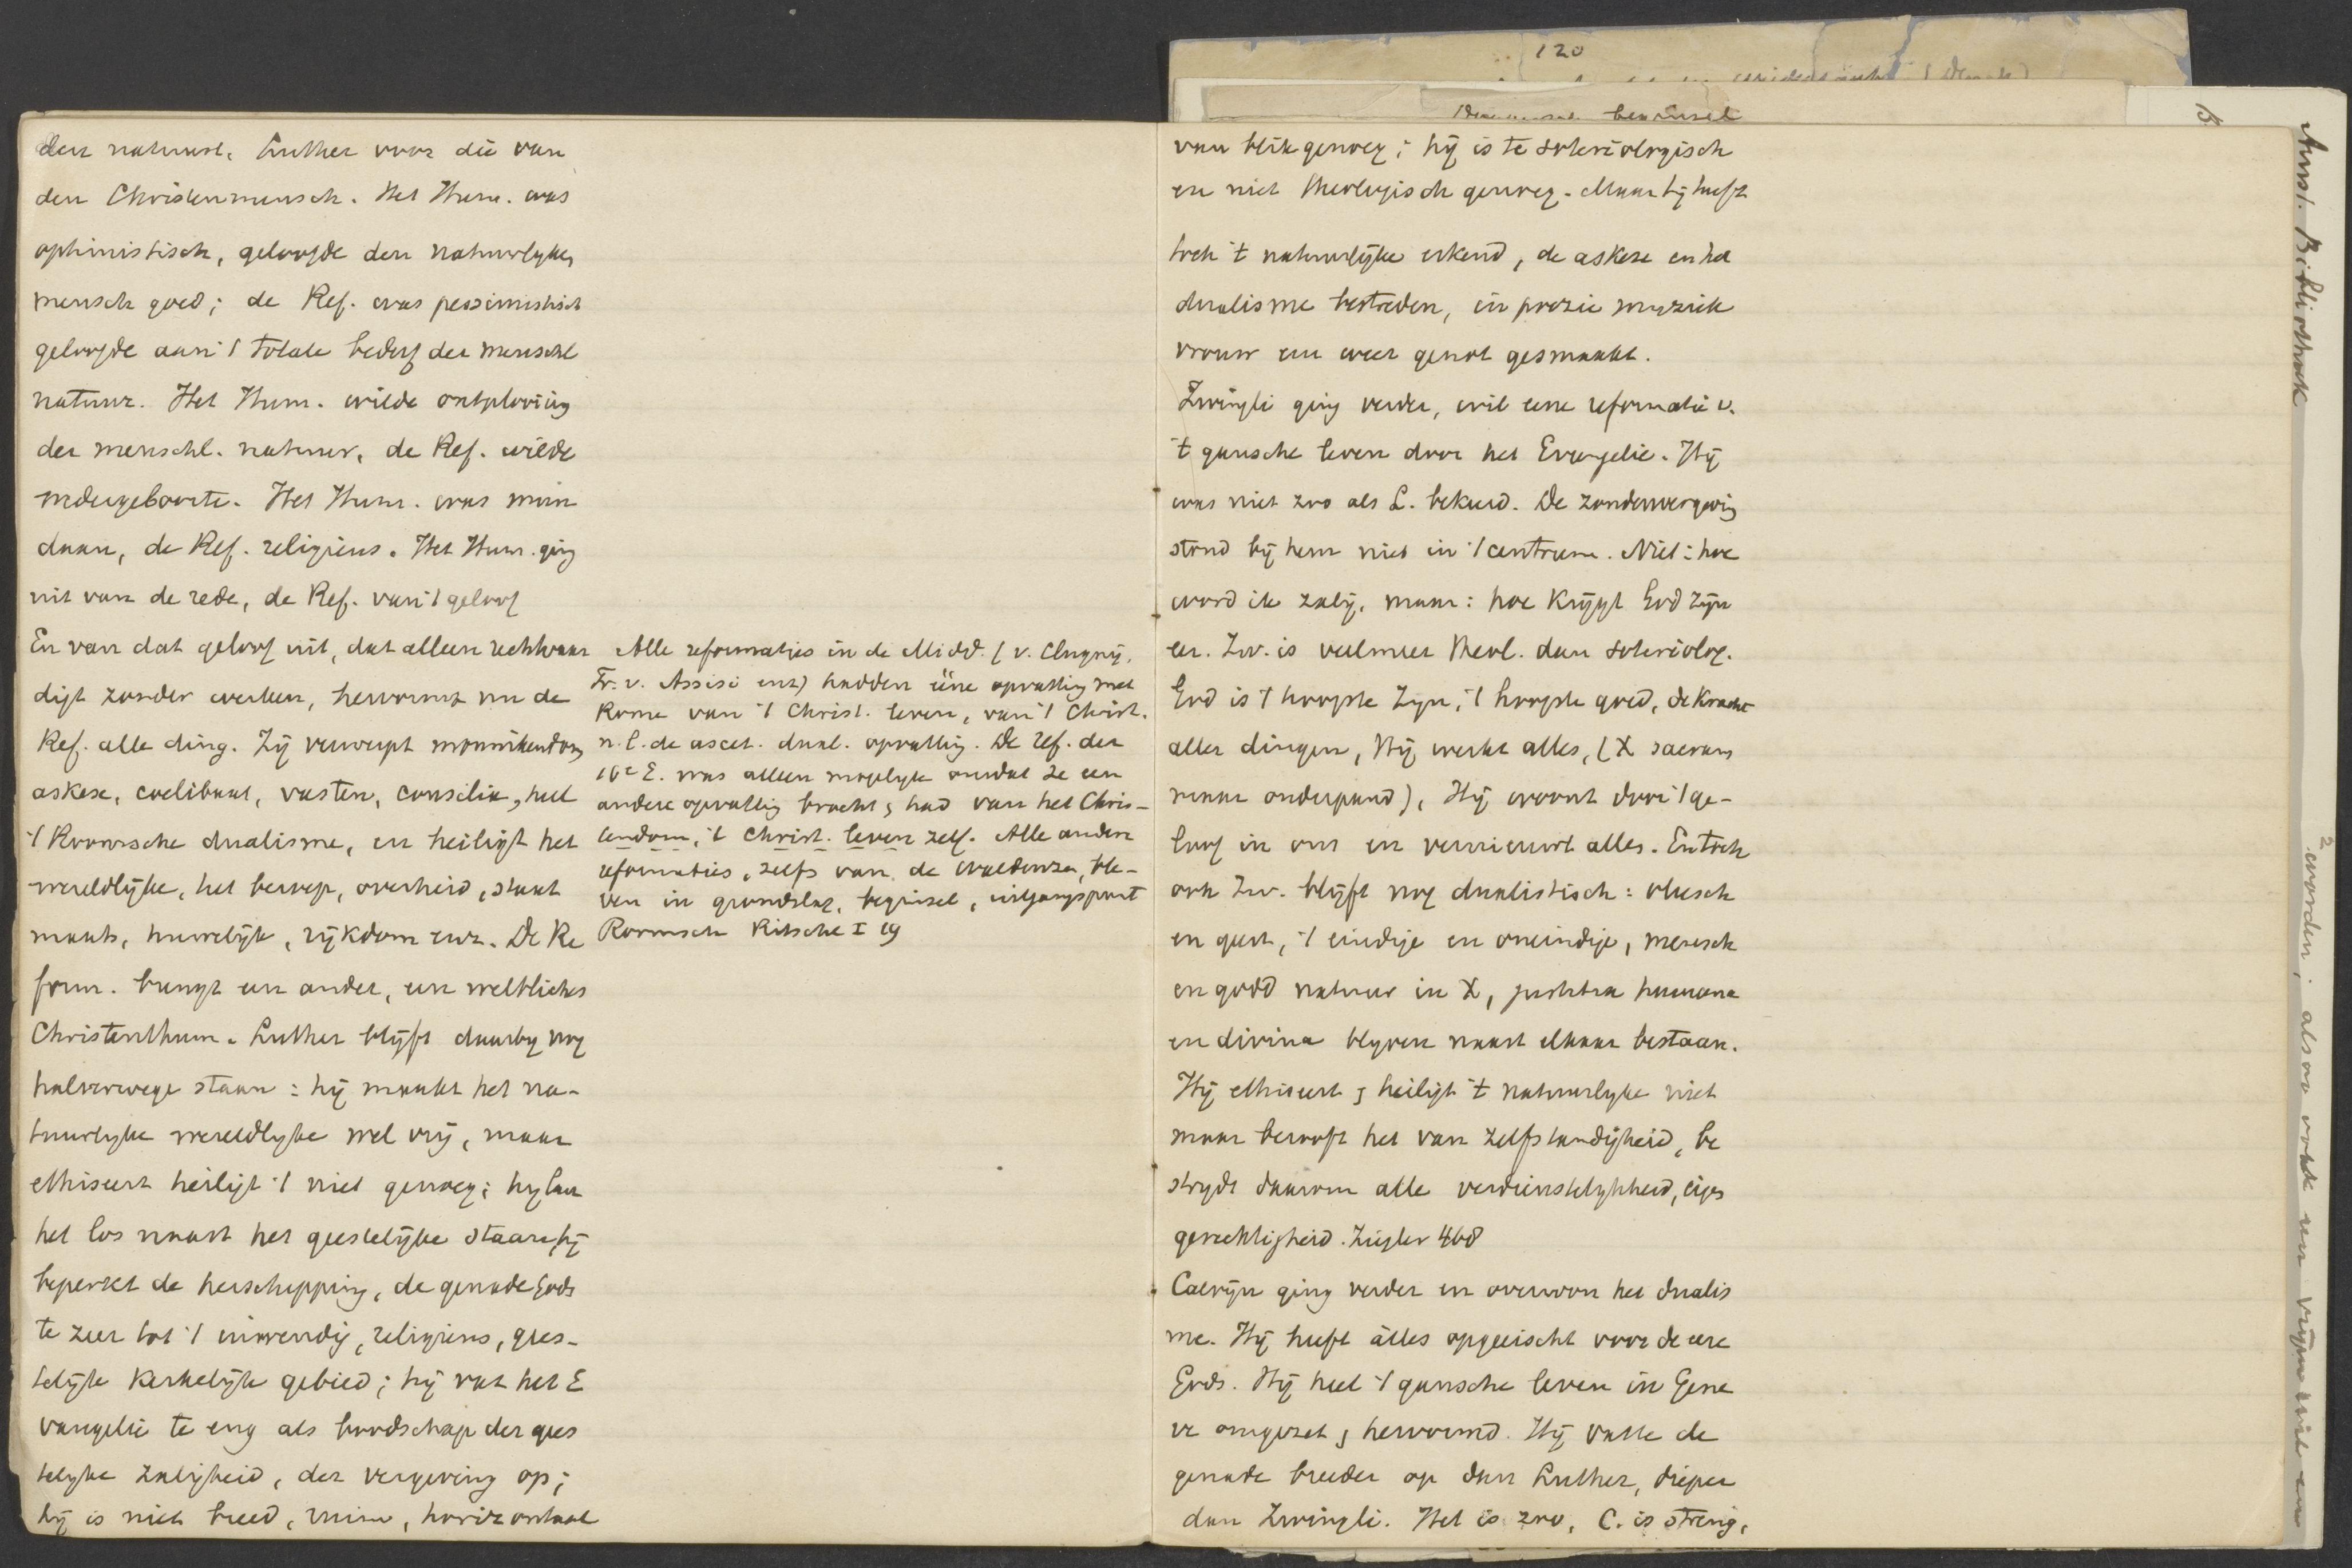 den natuurl. Luther voor die van
den Christenmensch. Het Hum. was
optimistisch, geloofde den natuurlyken
mensch goed; de Ref. was pessimistisch
geloofde aan 't totale bederf der menschl
natuur. Het Hum. wilde ontplooiing
der menschl. natuur, de Ref. wilde
wedergeboorte. Het Hum. was mon
daan, de Ref. religieus. Het Hum. ging
uit van de rede, de Ref. van 't geloof
En van dat geloof uit, dat alleen rechtvaar
digt zonder werken, hervormt nu de
Ref. alle ding. Zij verwerpt monnikendom
askese, coelibaat, vasten, consilia, heel
't Roomsche dualisme, en heiligt het
wereldlijke, het beroep, overheid, staat
maats, huwelijk, rijkdom enz. De Re
form. brengt een ander, een weltliches
Christenthum. Luther blijft daarby nog
halverwege staan: hij maakt het na-
tuurlyke wereldlyke wel vrij, maar
ethiseert heiligt 't niet genoeg; hy laat
het los naast het geestelijke staan, hij
beperkt de herschepping, de genade Gods
te zeer tot 't inwendig, religieus, gees-
telijke kerkelijke gebied; hij vat het E
vangelie te eng als boodschap der gees
telyke zaligheid, der vergeving op;
hij is niet breed, ruim, horizontaal
Alle reformaties in de Midd. (v. Clugny,
Fr. v. Assisi enz) hadden ééne opvatting met
Rome van 't Christ. leven, van 't Christ.
n.l. de ascet. dual. opvatting. De ref. der
16e E. was alleen mogelyk omdat ze een
andere opvatting bracht & had van het Chris-
tendom, 't Christ. leven zelf. Alle andere
reformaties, zelfs van de Waldenzen, ble-
ven in grondslag, beginsel, uitgangspunt
Roomsch Ritschl I 19
van blik genoeg; hij is te soteriologisch
en niet theologisch genoeg. Maar hij heeft
toch 't natuurlijke erkend, de askese en het
dualisme bestreden, in poezie muziek
vrouw en weer genot gesmaakt.
Zwingli ging verder, wil eene reformatie v.
't gansche leven door het Evangelie. Hij
was niet zoo als L. bekeerd. De zondenvergeving
stond bij hem niet in 't centrum. Niet: hoe
word ik zalig, maar: hoe krijgt God zijn
eer. Zw. is veelmeer Theol. dan soteriolog.
God is 't hoogste Zijn, 't hoogste goed, de kracht
aller dingen, Hij werkt alles, (X sacram
maar onderpand), Hij woont door 't ge-
loof in ons en vernieuwt alles. En toch
ook Zw. blijft nog dualistisch: vleesch
en geest, 't eindige en oneindige, mensch
en godd natuur in X, justitia humana
en divina blyven naast elkaar bestaan.
Hij ethiseert & heiligt 't natuurlyke niet
maar berooft het van zelfstandigheid, be
strydt daarom alle verdienstelykheid, eigen
gerechtigheid. Ziegler 468
Calvijn ging verder en overwon het dualis
me. Hij heeft álles opgeëischt voor de eere
Gods. Hij heel 't gansche leven in Gene
ve omgezet & hervormd. Hij vatte de
genade breeder op dan Luther, dieper
dan Zwingli. Het is zoo, C. is streng,
120
beginsel
Amst. Bibliotheek
worden; alsoo ook een